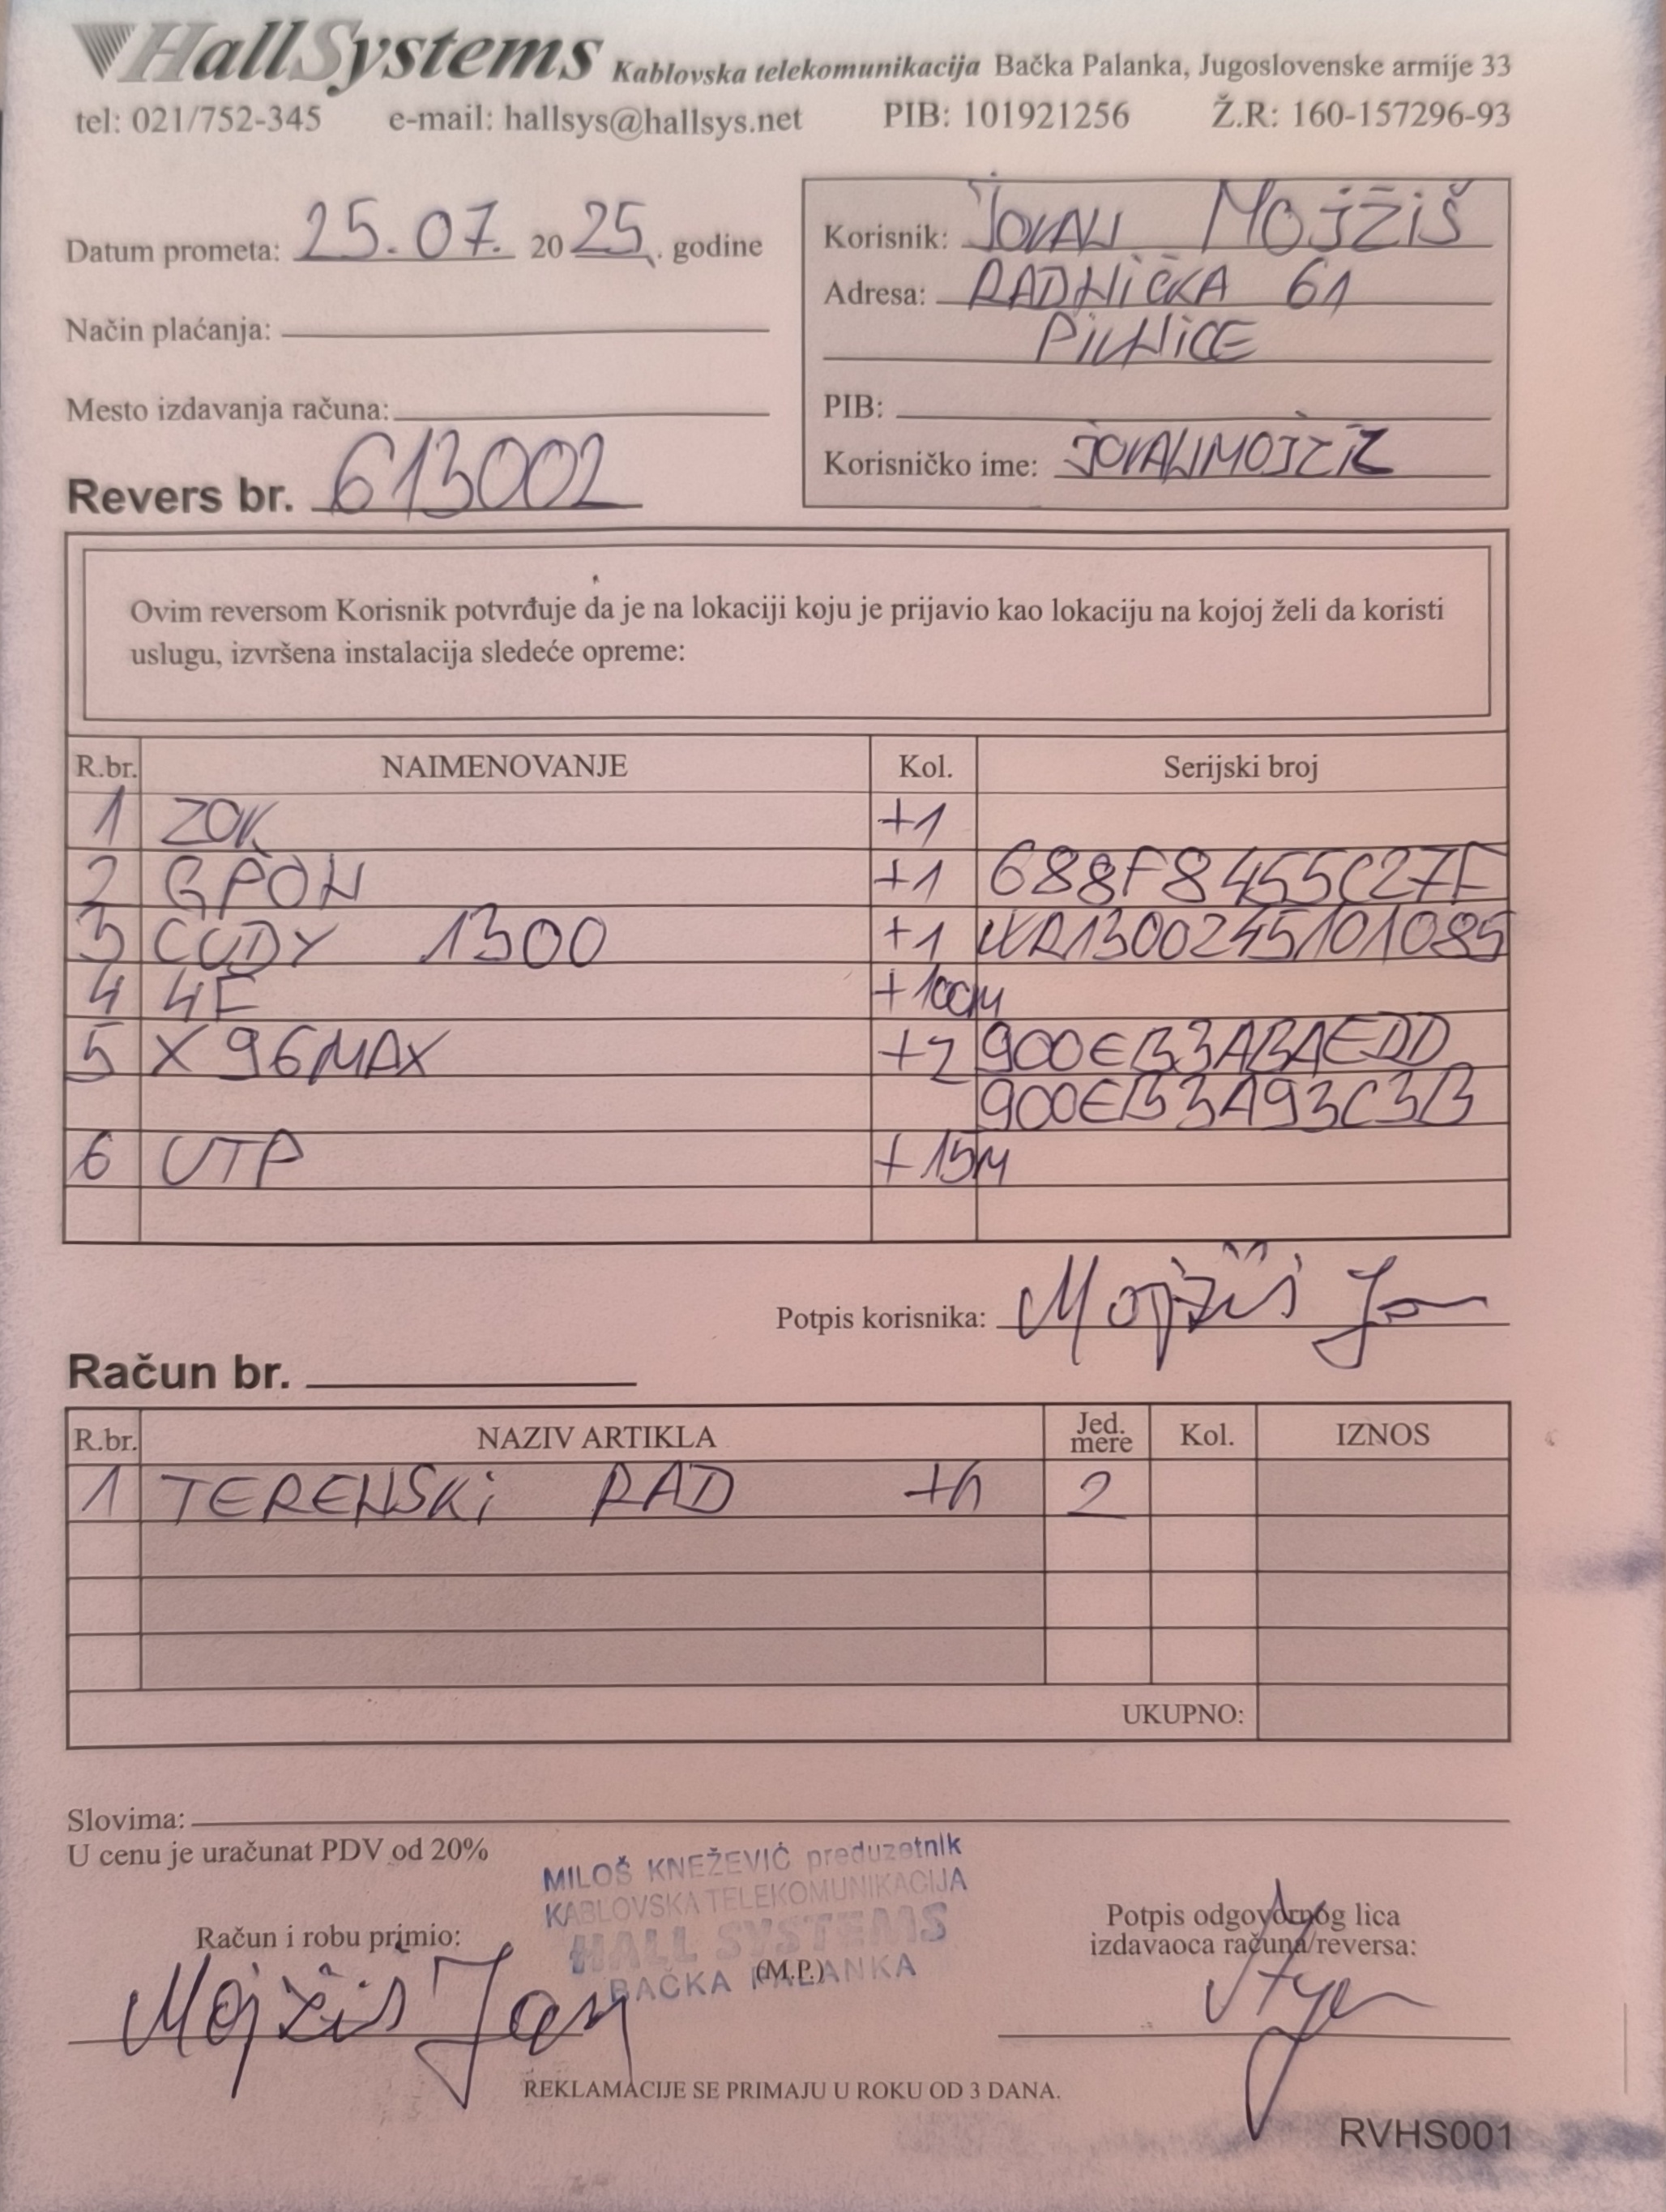 HallSystems Kablovska telekomunikacija Bačka Palanka, Jugoslovenske armije 33
tel: 021/752-345 e-mail: hallsys@hallsys.net PIB: 101921256 Ž.R: 160-157296-93
Datum prometa: 25.07. 2025. godine
Način plaćanja:
Mesto izdavanja računa:
Revers br. 613002
Korisnik: JOVAN MOJŽIŠ
Adresa: RADNIČKA 61
PIVNICE
PIB:
Korisničko ime: JOVANMOJZIZ
Ovim reversom Korisnik potvrđuje da je na lokaciji koju je prijavio kao lokaciju na kojoj želi da koristi
uslugu, izvršena instalacija sledeće opreme:
R.br. NAIMENOVANJE Kol. Serijski broj
1 ZOK +1
2 GPON +1 688F8455C27F
3 CUDY 1300 +1 WR1300245101085
4 4F +100M
5 X96MAX +2 900EB3ABAEDD
900EB3A93C3B
6 UTP +15M
Potpis korisnika: Mojžiš Jan
Račun br.
R.br. NAZIV ARTIKLA Jed. mere Kol. IZNOS
1 TERENSKI RAD +h 2
UKUPNO:
Slovima:
U cenu je uračunat PDV od 20%
MILOŠ KNEŽEVIĆ preduzetnik
KABLOVSKA TELEKOMUNIKACIJA
HALL SYSTEMS
BAČKA PALANKA
(M.P.)
Račun i robu primio:
Mojžiš Jan
Potpis odgovornog lica
izdavaoca računa/reversa:
REKLAMACIJE SE PRIMAJU U ROKU OD 3 DANA.
RVHS001